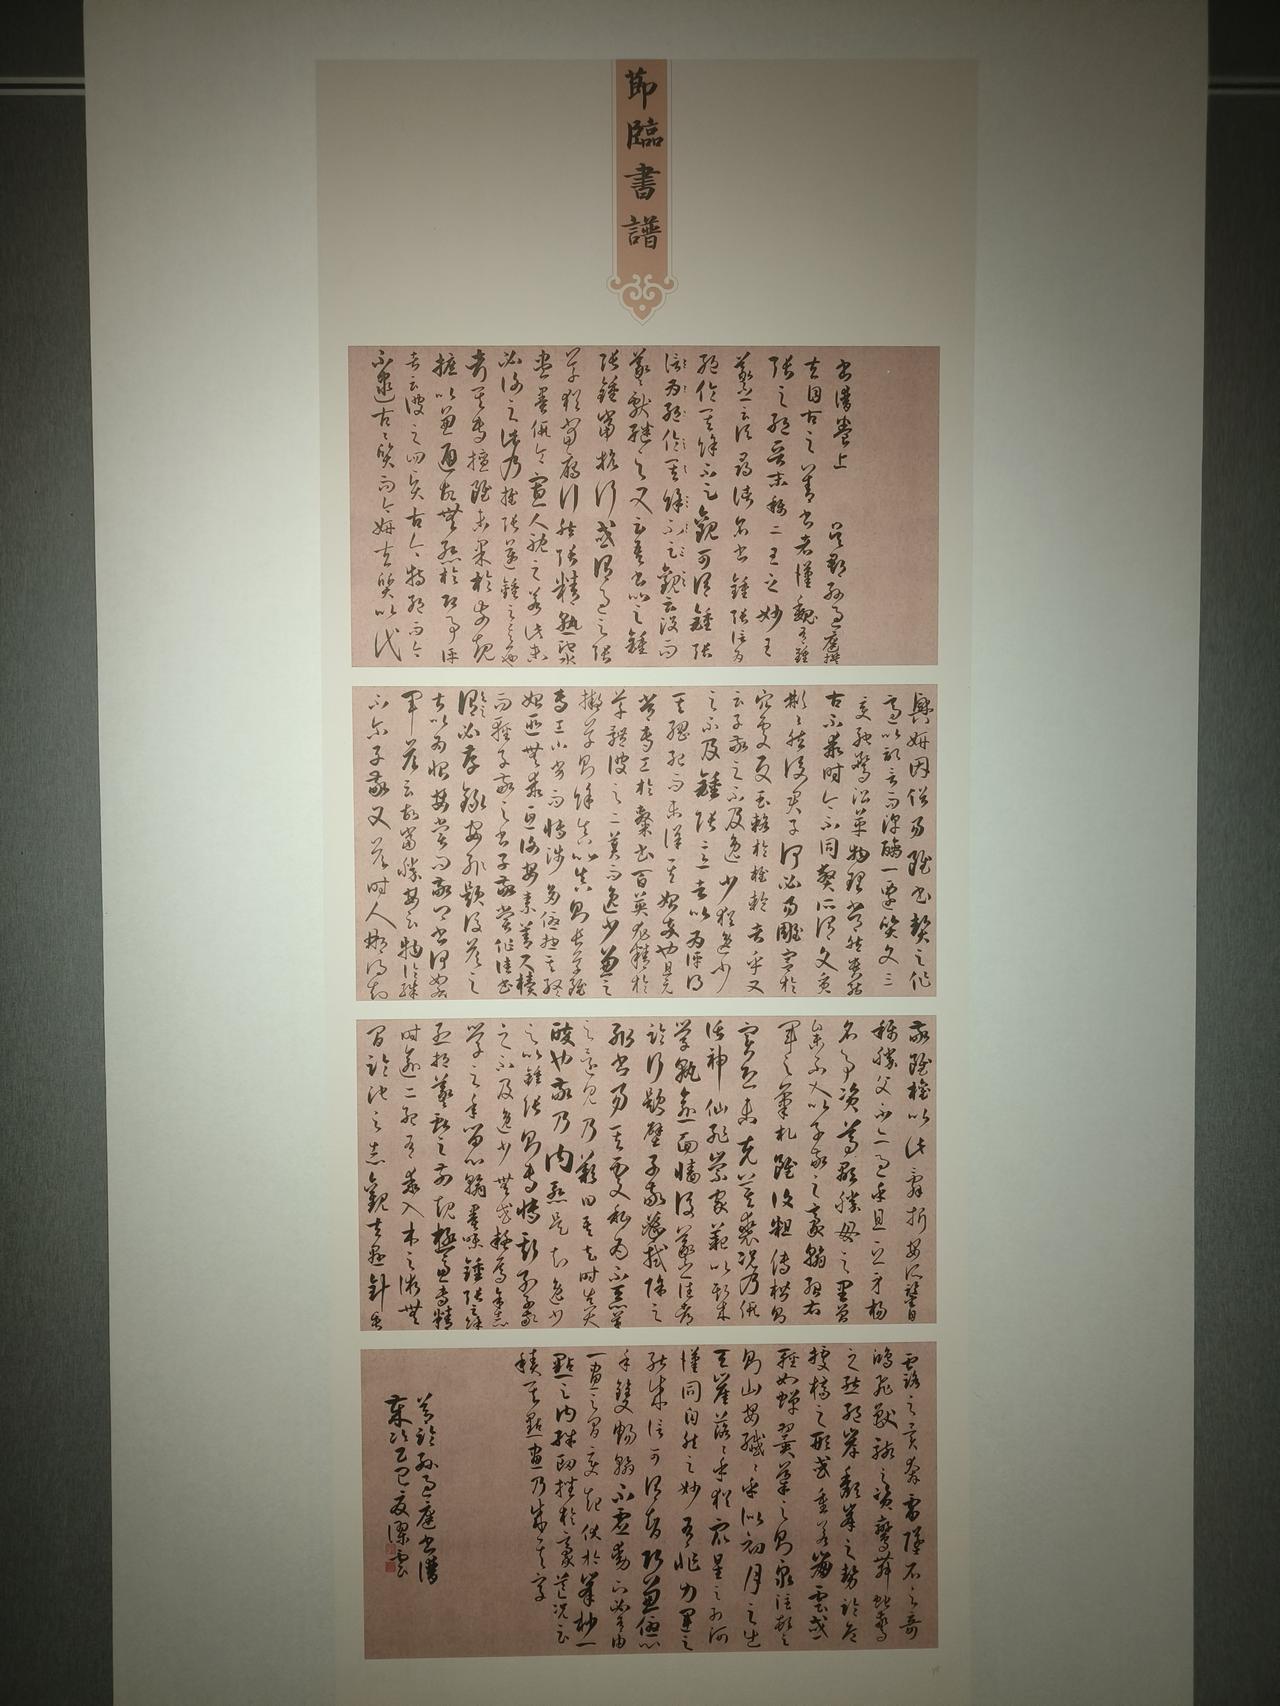 節臨書譜
書譜卷上 吳郡孫過庭撰
夫自古之善書者漢魏有鍾
張之絕晉末稱二王之妙王
羲之云頃尋諸名書鍾張信為
絕倫其餘不足觀可謂鍾張
信為絕倫其餘不足觀云沒而
羲獻繼之又云吾書比之鍾
張鍾當抗行或謂過之張
草猶當雁行然張精熟池水
盡墨假令寡人耽之若此未
必謝之此乃推張邁鍾之意也
考其專擅雖未果於前規
摭以兼通故無慚於即事評
者云彼之四賢古今特絕而今
不逮古古質而今妍夫質以代
興妍因俗易雖書契之作
適以記言而淳醨一遷質文三
變馳騖沿革物理常然貴能
古不乖時今不同弊所謂文質
彬彬然後君子何必易雕宮於
穴處反玉輅於椎輪者乎又
云子敬之不及逸少猶逸少
之不及鍾張意者以為評得
其綱紀而未詳其始卒也且元
常專工於隸書百英尤精於
草體彼之二美而逸少兼之
擬草則餘真比真則長草雖
專工小劣而博涉多優總其終
始匪無乖互謝安素善尺牘
而輕子敬之書子敬嘗作佳書
與之謂必存錄安輒題後答之
甚以為恨安嘗問敬卿書何如右
軍答云故當勝安云物論殊
不爾子敬又答時人那得知
敬雖權以此辭折安所鑒自
稱勝父不亦過乎且立身揚
名事資尊顯勝母之里曾
參不入以子敬之豪翰紹右
軍之筆札雖復粗傳楷則
實恐未克箕裘況乃假
託神仙恥崇家範以斯成
學孰愈面牆後羲之往都
臨行題壁子敬密拭除之
輒書易其處私為不惡羲
之還見乃歎曰吾去時真大
醉也敬乃內慚是知逸少
之比鍾張則專博斯別子敬
之不及逸少無或疑焉余志
學之年留心翰墨味鍾張之餘
烈挹羲獻之前規極慮專精
時逾二紀有乖入木之術無
間臨池之志觀夫懸針垂
露之異奔雷墜石之奇
鴻飛獸駭之資鸞舞蛇驚
之態絕岸頹峰之勢臨危
據槁之形或重若崩雲或
輕如蟬翼導之則泉注頓之
則山安纖纖乎似初月之出
天崖落落乎猶眾星之列河
漢同自然之妙有非力運之
能成信可謂智巧兼優心
手雙暢翰不虛動下必有由
一畫之間變起伏於峰杪一
點之內殊衄挫於豪芒況云
積其點畫乃成其字
節臨孫過庭書譜
歲次乙巳夏潔雲